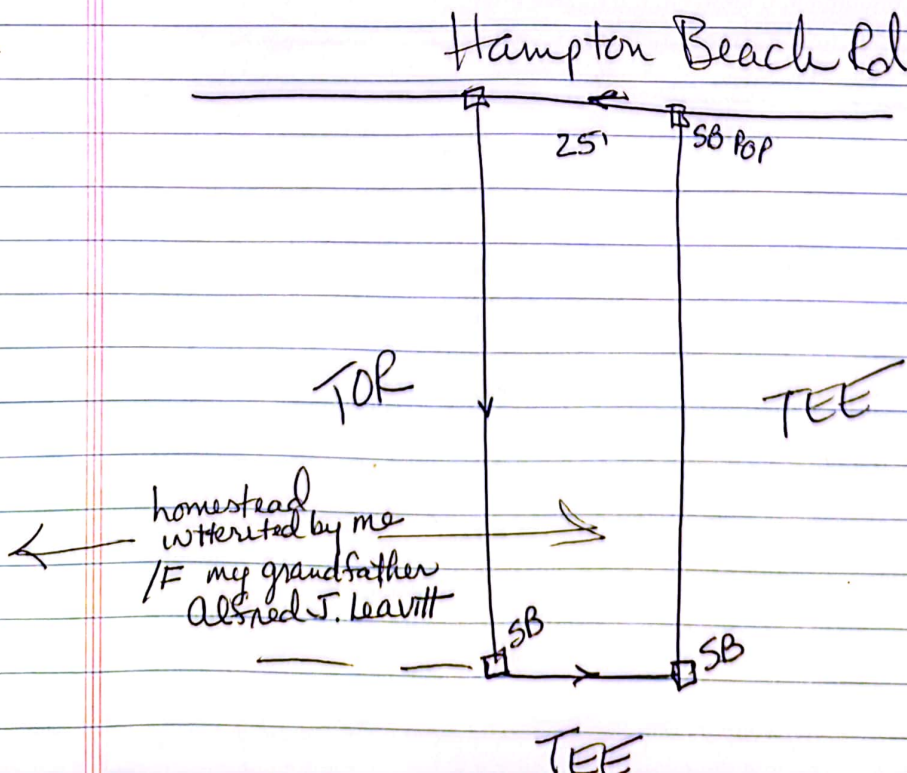 Hampton Beach Rd
25'
SB POP
TOR
TEE
homestead
inherited by me
/F my grandfather
Alfred J. Leavitt
SB
SB
TEE